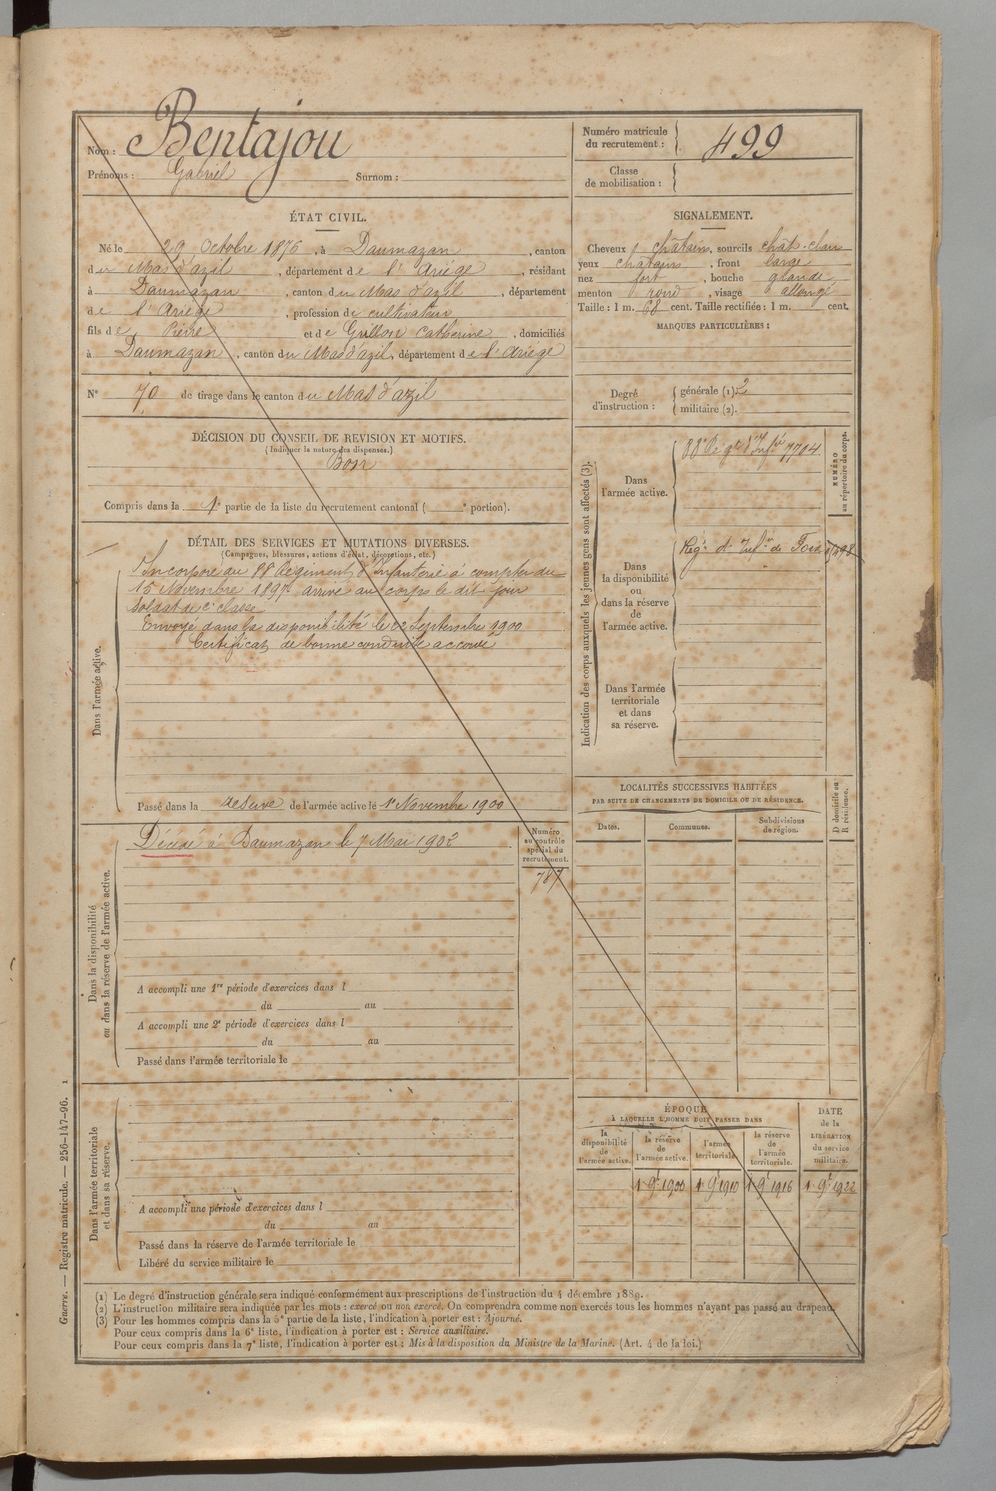 Nom : Bentajou
Prénoms : Gabriel Surnom :
Numéro matricule du recrutement : 499
Classe de mobilisation :
ÉTAT CIVIL.
Né le 29 Octobre 1876, à Daumazan, canton
du Mas d'azil, département de l'Ariège, résidant
à Daumazan, canton du Mas d'azil, département
de l'Ariège, profession de cultivateur
fils de Pierre et de Gullon Catherine, domiciliés
à Daumazan, canton du Mas d'azil, département de l'Ariège
N° 70 de tirage dans le canton du Mas d'azil
SIGNALEMENT.
Cheveux chatain, sourcils chât-clair
yeux chatain, front large
nez fort, bouche grande
menton rond, visage allongé
Taille : 1 m. 68 cent. Taille rectifiée : 1 m. cent.
MARQUES PARTICULIÈRES :
Degré d'instruction : générale (1) 2
militaire (2).
DÉCISION DU CONSEIL DE REVISION ET MOTIFS.
(Indiquer la nature des dispenses.)
Bon
Compris dans la 1e partie de la liste du recrutement cantonal ( e portion).
DÉTAIL DES SERVICES ET MUTATIONS DIVERSES.
(Campagnes, blessures, actions d'éclat, décorations, etc.)
Dans l'armée active.
Incorporé au 88e Régiment d'Infanterie à compter du
15 Novembre 1897 arrivé au corps le dit jour
Soldat de 2e classe
Envoyé dans la disponibilité le 22 Septembre 1900
Certificat de bonne conduite accordé
Passé dans la réserve de l'armée active le 1er Novembre 1900
Indication des corps auxquels les jeunes gens sont affectés (3).
NUMÉRO au répertoire du corps.
Dans l'armée active.
88e Regt d'Infie 7704
Dans la disponibilité ou dans la réserve de l'armée active.
Regt d'Infie de Foix
Dans l'armée territoriale et dans sa réserve.
LOCALITÉS SUCCESSIVES HABITÉES
PAR SUITE DE CHANGEMENTS DE DOMICILE OU DE RÉSIDENCE.
Dates. Communes. Subdivisions de région. D domicile ou R résidence.
Dans la disponibilité ou dans la réserve de l'armée active.
Décédé à Daumazan le 7 Mai 1902
Numéro au contrôle spécial du recrutement.
787
A accompli une 1re période d'exercices dans l
du au
A accompli une 2e période d'exercices dans l
du au
Passé dans l'armée territoriale le
Dans l'armée territoriale et dans sa réserve.
A accompli une période d'exercices dans l
du au
Passé dans la réserve de l'armée territoriale le
Libéré du service militaire le
ÉPOQUE
À LAQUELLE L'HOMME DOIT PASSER DANS
la disponibilité de l'armée active.
la réserve de l'armée active.
l'armée territoriale.
la réserve de l'armée territoriale.
DATE de la LIBÉRATION du service militaire.
1 9e 1900 1 9e 1910 1 9e 1916 1 9e 1922
(1) Le degré d'instruction générale sera indiqué conformément aux prescriptions de l'instruction du 4 décembre 1889.
(2) L'instruction militaire sera indiquée par les mots : exercé ou non exercé. On comprendra comme non exercés tous les hommes n'ayant pas passé au drapeau.
(3) Pour les hommes compris dans la 5e partie de la liste, l'indication à porter est : Ajourné.
Pour ceux compris dans la 6e liste, l'indication à porter est : Service auxiliaire.
Pour ceux compris dans la 7e liste, l'indication à porter est : Mis à la disposition du Ministre de la Marine. (Art. 4 de la loi.)
Guerre. — Registre matricule. — 256-147-96. 1